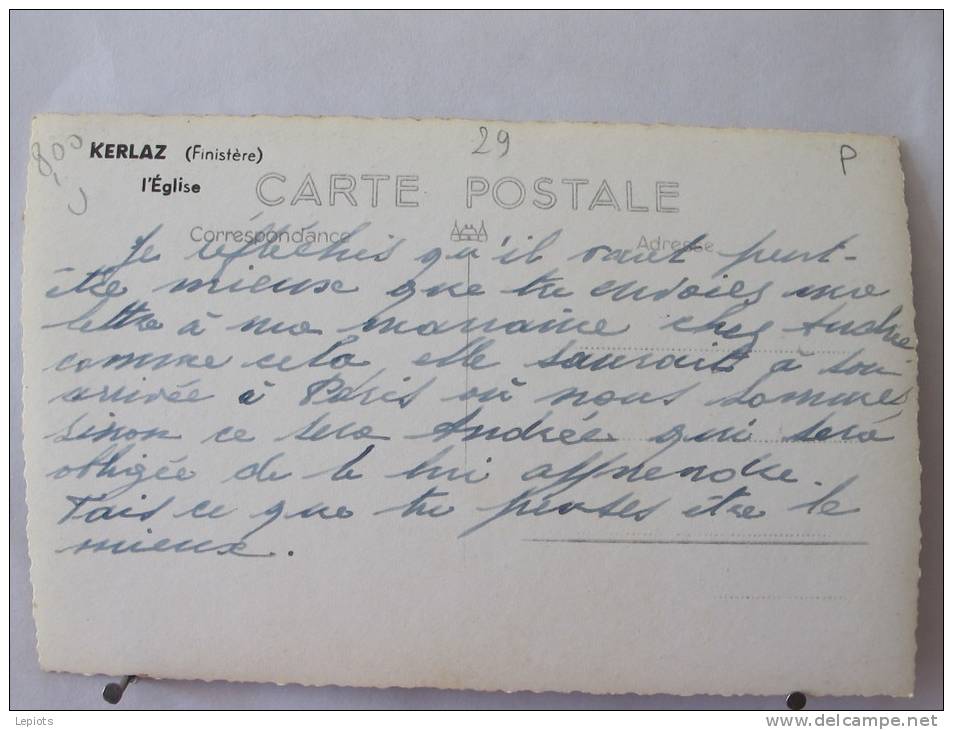 29
P
800
KERLAZ (Finistère)
l'Église
CARTE POSTALE
Correspondance
Adresse
Je réfléchis qu'il vaut peut-
être mieux que tu envoies une
lettre à ma marraine chez Andrée.
comme cela elle saurait à son
arrivée à Paris où nous sommes,
sinon ce sera Andrée qui sera
obligée de le lui apprendre.
Fais ce que tu penses être le
mieux.
Lepiots
www.delcampe.net